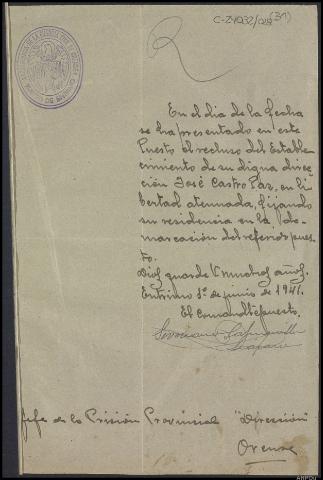 C-24032/028 (31)
En el dia de la fecha
se ha presentado en este
Puesto el recluso del Estable-
cimiento de su digna direc-
ción José Castro Paz, en li-
bertad atenuada, fijando
su residencia en la de-
marcación del referido pues-
to.
Dios guarde V muchos años.
Entrimo 1º de junio de 1941.
El Comandte puesto.
Jefe de la Prisión Provincial "Dirección"
Orense